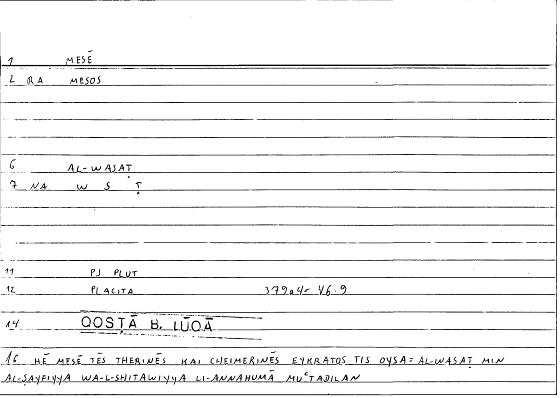 1 MESĒ
2 RA MESOS
6 AL-WASAṬ
7 NA W S Ṭ
11 PJ PLUT
12 PLACITA 379a4- 46.9
14 QOSṬĀ B. LŪQĀ
16 HĒ MESĒ TĒS THERINĒS KAI CHEIMERINĒS EYKRATOS TIS OYSA = AL-WASAṬ MIN
AL-ṢAYFIYYA WA-L-SHITAWIYYA LI-ANNAHUMĀ MUʿTADILAN